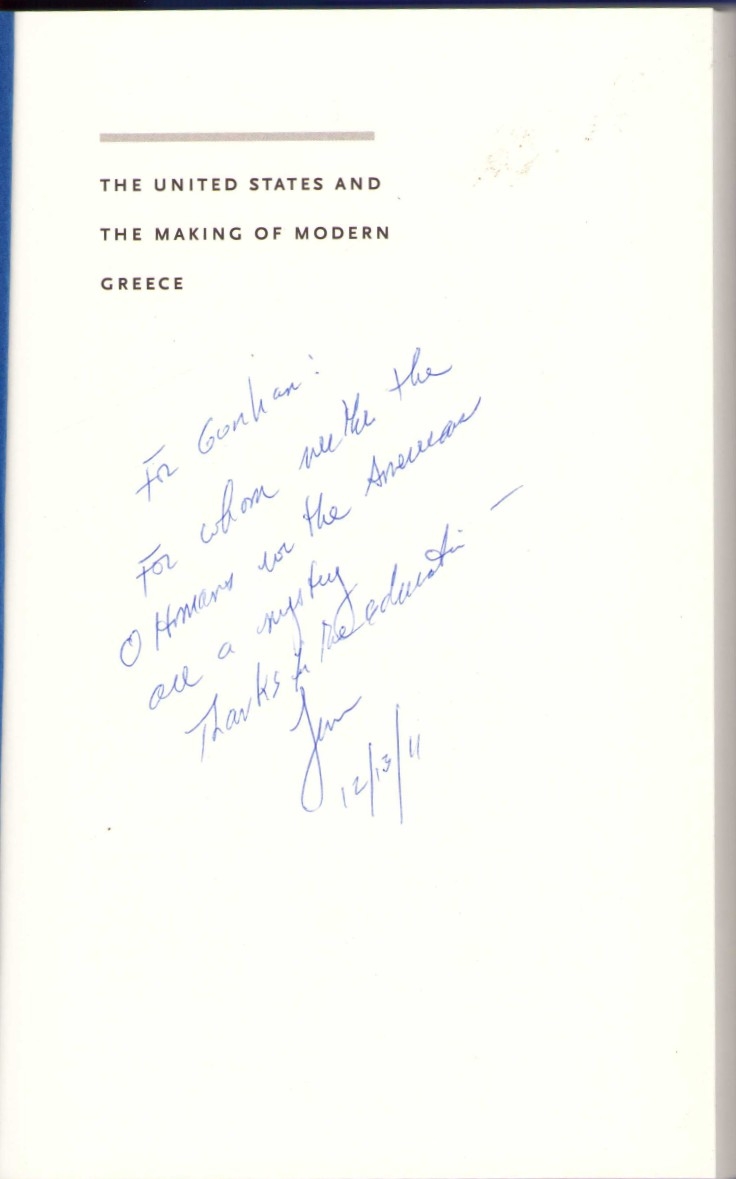 THE UNITED STATES AND
THE MAKING OF MODERN
GREECE
For Gunhan:
For whom neither the
Ottomans nor the American
are a mystery
Thanks for the education —
12/13/11